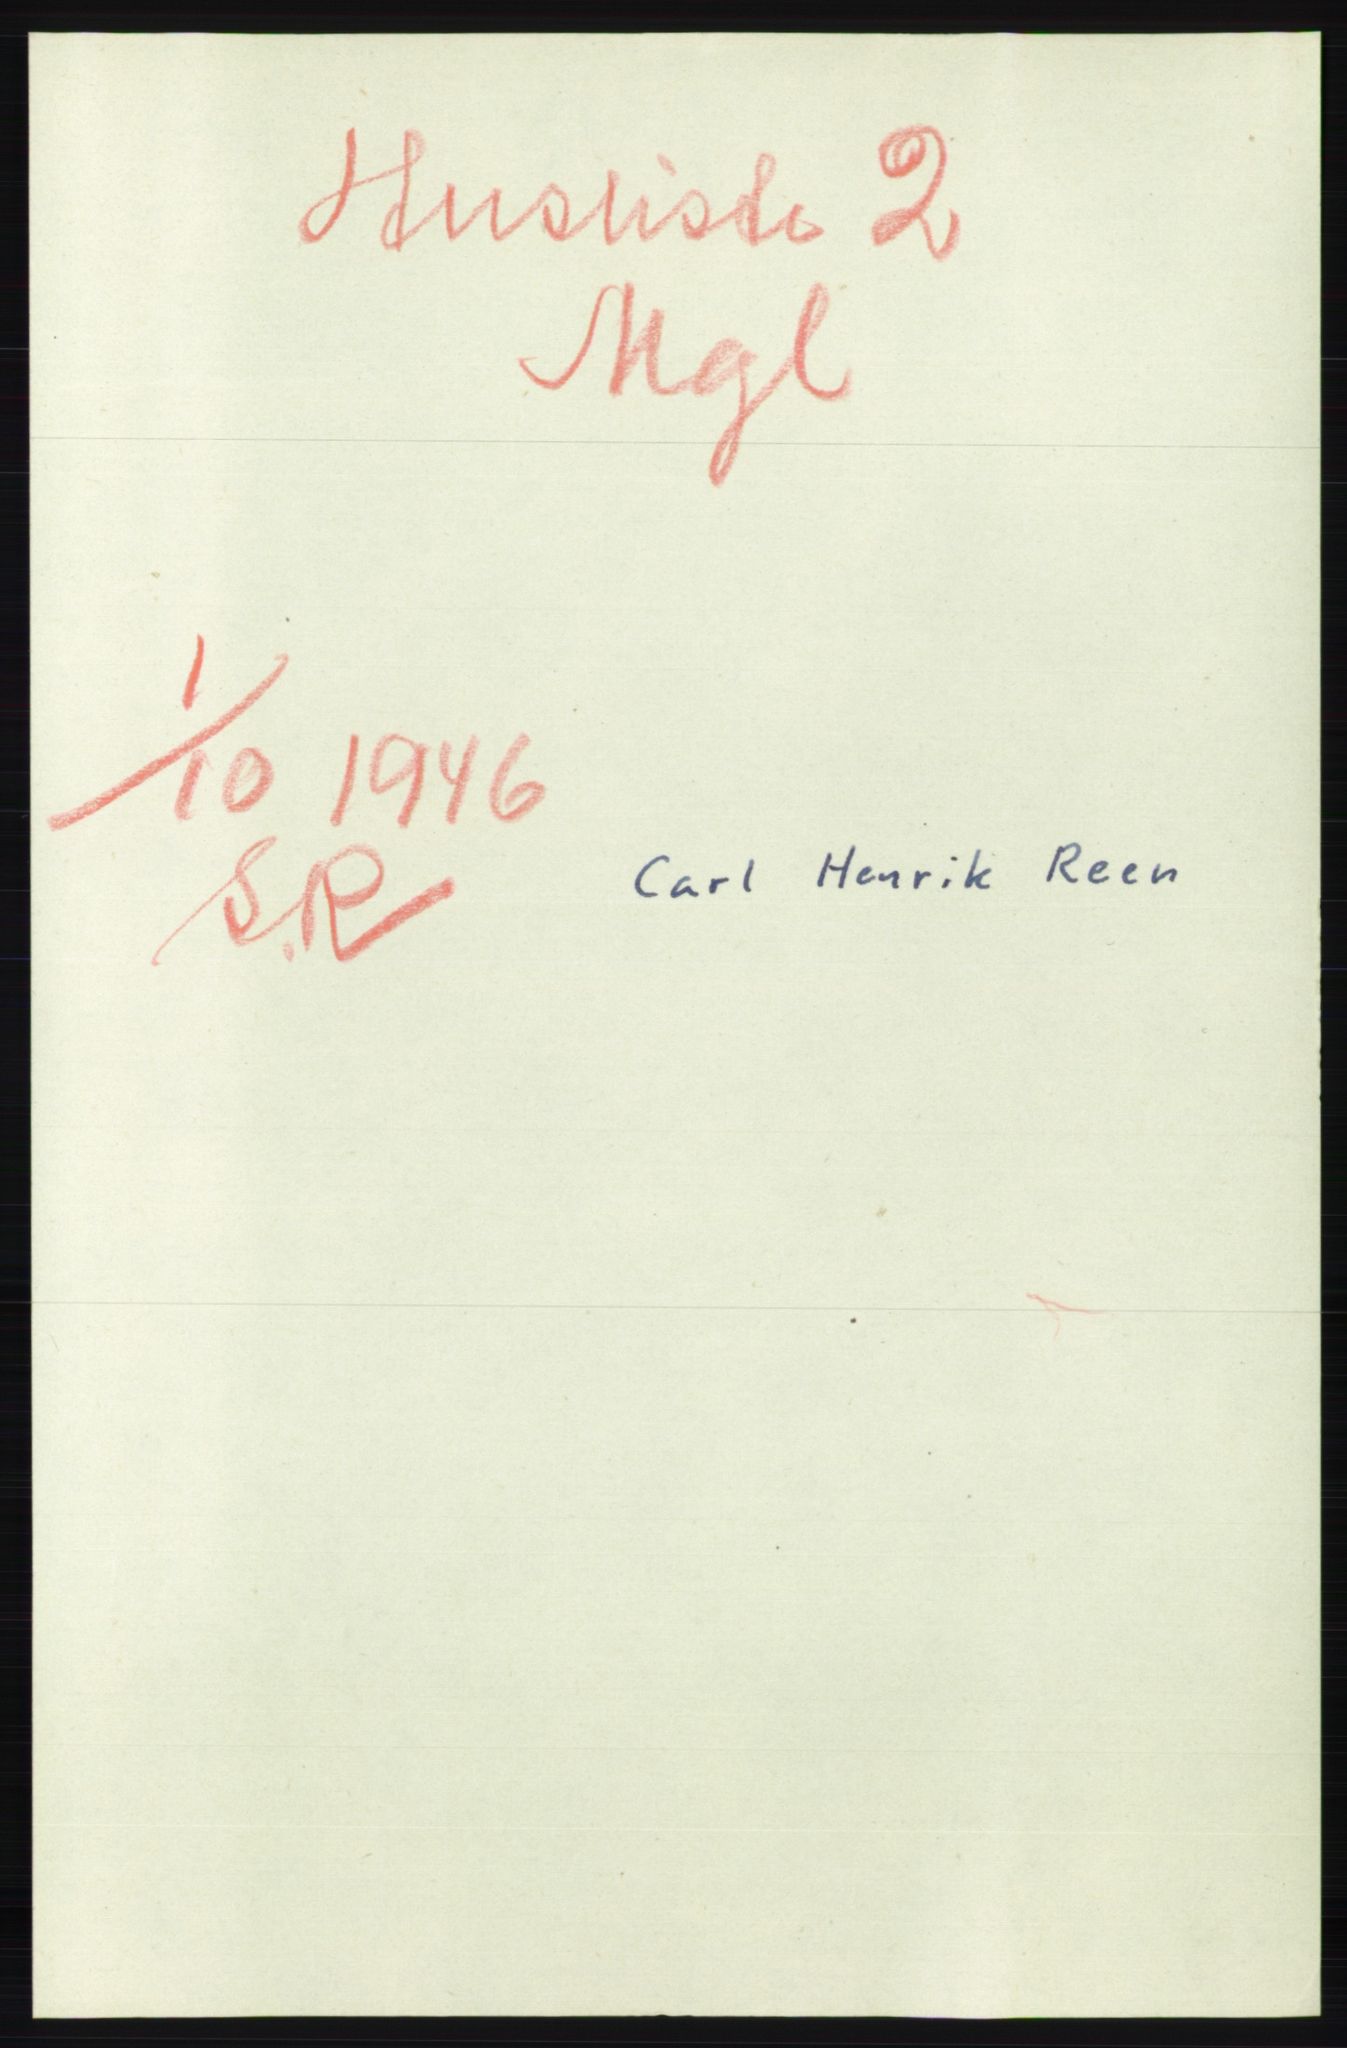 Husliste 2
Mgl
1/10 1946
S.R
Carl Henrik Reen